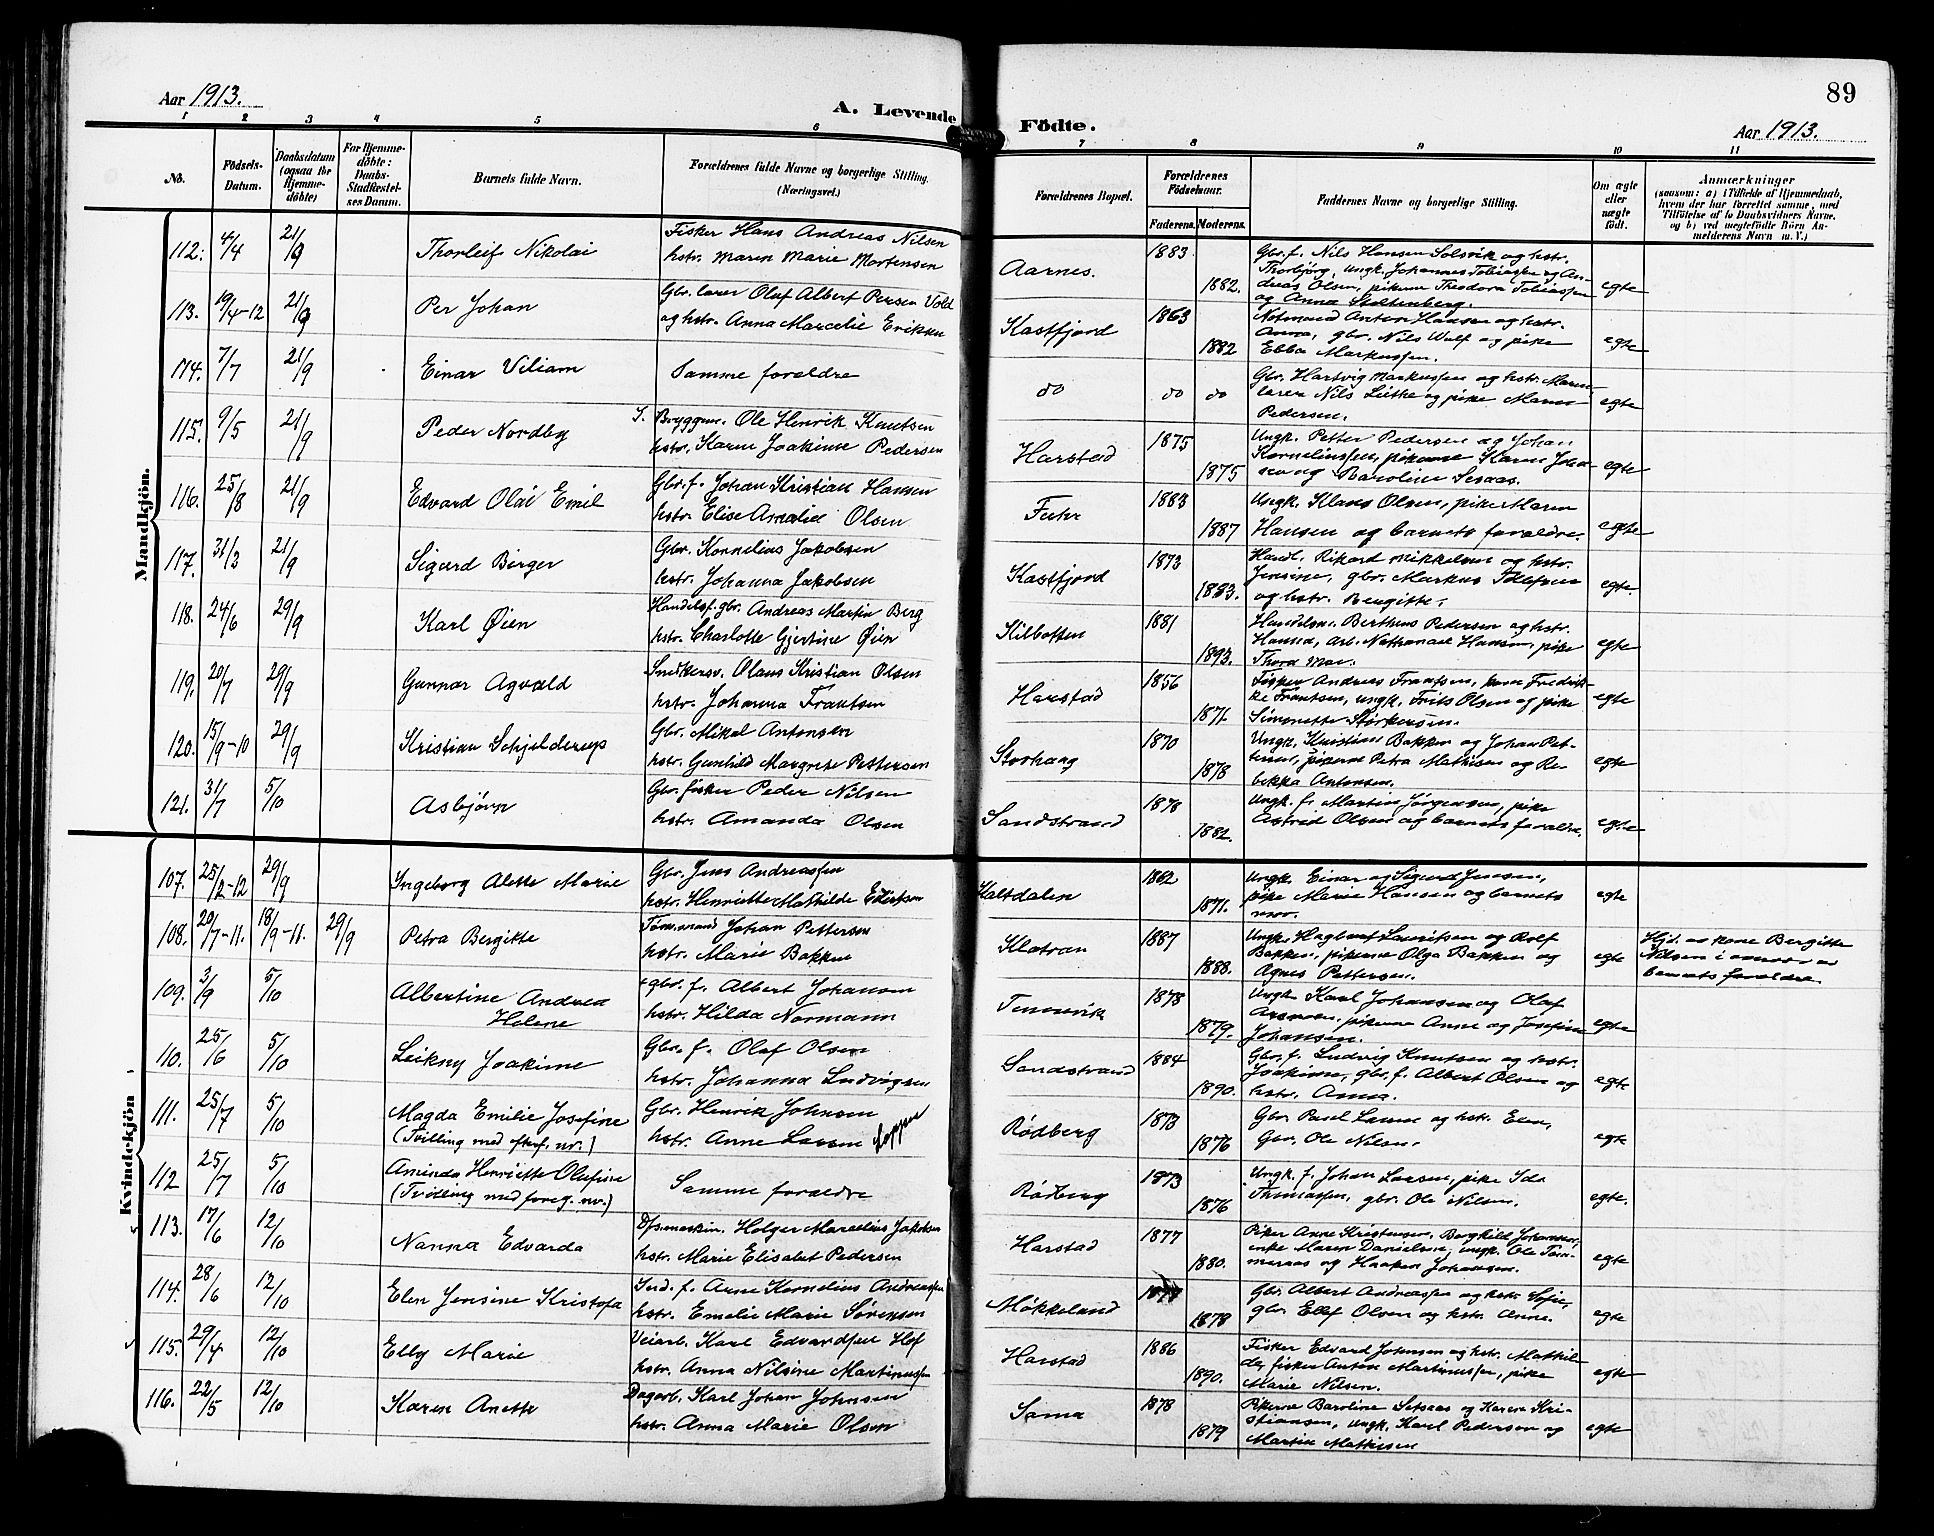 Aar 1913.
A. Levende
Födte.
89
Aar 1913.
1 2 3 4 5 6 7 8 9 10 11
No.
Födsels-
Datum.
Daabsdatum
(ogsaa for
Hjemme-
döbte)
For Hjemme-
döbte:
Daabs-
Stadfæstel-
ses Datum.
Barnets fulde Navn.
Forældrenes fulde Navne og borgerlige Stilling.
(Næringsvei.)
Forældrenes Bopæl.
Forældrenes
Födselsaar.
Faderens. Moderens.
Faddernes Navne og borgerlige Stilling.
Om ægte
eller
uægte
födt.
Anmærkninger
(saasom: a) i Tilfælde af Hjemmedaab,
hvem der har forrettet samme, med
Tilföielse af to Daabsvidners Navne,
og b) ved uægtefödte Börn An-
melderens Navn m. V.)
Mandkjön.
112. 4/4 21/9 Thorleif Nikolai
Fisker Hans Andreas Nilsen
hstr. Maren Marie Mortensen
Aarnes. 1883 1882.
Gbr.f. Nils Hansen Solsvik og hstr.
Thorbjörg, ungk. Johannes Tobiassen og An-
dreas Olsen, pikerne Theodora Tobiassen
og Anna Stoltenberg.
egte
113. 19/4-12 21/9 Per Johan
Gbr. lærer Olaf Albert Persen Vold
og hstr. Anna Marcelie Eriksen
Kastfjord 1863 1882
Notmand Anton Hansen og hstr.
Anna, gbr. Nils Wulf og pike
Ebba Markussen.
egte
114. 7/7 21/9 Einar Viliam
Samme foreldre
do do do
Gbr. Hartvig Markussen og hstr. Maren
lærer Nils og pike
Pedersen.
egte
115. 9/5 21/9 Peder Nordby
S. Bryggem. Ole Henrik Knutsen
hstr. Karen Joakime Pedersen
Harstad 1875 1875
Ungk. Petter Pedersen og Johan
Korneliussen, pikerne Karen Johan
sen og Baroline Sesaas.
egte
116. 25/8 21/9 Edvard Olai Emil
Gbr.f. Johan Kristian Hansen
hstr. Elise Amalie Olsen
1883 1887
Ungk. Klaus Olsen, pike Maren
Hansen og barnets foreldre.
egte
117. 31/3 21/9 Sigurd Birger
Gbr. Kornelius Jakobsen
hstr. Johanna Jakobsen
Kastfjord 1873 1883.
Handl. Rikard Mikkelsen og hstr.
Jensine, gbr. Markus
og hstr. Bergitte.
egte
118. 24/6 29/9 Karl Øien
Handelsf. gbr. Andreas Martin Berg
hstr. Charlotte Gjertine Øien
Kilbotten 1881 1893.
Handelsm. Berthus Pedersen og hstr.
Hanna, arb. Nathanael Hansen, pike
Thora Moe.
egte
119. 20/7 29/9 Gunnar Agvald
Snekkersv. Olaus Kristian Olsen
hstr. Johanna Frantsen
Harstad 1856 1871.
Fisker Andreas Frantsen, kone Fredrik-
ke Frantsen, ungk. Frits Olsen og pike
Simonette Størkersen.
egte
120. 15/9-10 29/9 Kristian Schjelderup
Gbr. Mikal Antonsen
hstr. Gunhild Margrete Pettersen
Storhaug 1870 1878
Ungk. Kristian Bakken og Johan Pet-
tersen, pikerne Petra Mathisen og Re-
bekka Antonsen.
egte
121. 31/7 5/10 Asbjørn
Gbr. fisker Peder Nilsen
hstr. Amanda Olsen
Sandstrand 1878 1882.
Ungk. f. Martin Jørgensen, pike
Astrid Olsen og barnets foreldre.
egte
Kvindekjön
107. 25/2-12 29/9 Ingeborg Alette Marie
Gbr. Jens Andreassen
hstr. Henriette Mathilde
Kaltdalen 1862 1871.
Ungk. Einar og Sigurd Jensen,
pike Marie Hansen og barnets
mor.
egte
108. 20/7-11. 18/9-11. 29/9 Petra Bergitte
Tømmermand Johan Pettersen
hstr. Marie Bakken
Klatran 1887 1888.
Ungk. Lauritsen og Rolf
Bakken, pikerne Olga Bakken og
Agnes Pettersen.
egte
Hjd. av kone Bergitte
Nilsen i nærvær av
barnets foreldre
109. 3/9 5/10 Albertine Andrea
Helene
gbr. f. Albert Johansen
hstr. Hilda Normann
Tennevik 1878 1879.
Ungk. Karl Johansen og Olaf
pikerne Anne og Josefine
Johansen.
egte
110. 25/6 5/10 Leikny Joakime
Gbr. f. Olaf Olsen
hstr. Johanna Ludvigsen
Sandstrand 1884 1890.
Gbr. f. Ludvig Knutsen og hstr.
Joakime, gbr. f. Albert Olsen og
hstr. Anna.
egte
111. 25/7 5/10 Magda Emilie Josefine
(Tvilling med efterf. nr.)
Gbr. Henrik Johnsen
hstr. Anne Larsen
Rødberg 1873 1876
Gbr. Paul Larsen og hstr. Elen,
Gbr. Ole Nilsen.
egte
112 25/7 5/10 Aminda Henriette Olufine
(Tvilling med foreg. nr.)
Samme foreldre
Rødberg 1873 1876
Ungk. f. Johan Larsen, pike Ida
Thomassen, gbr. Ole Nilsen.
egte.
113. 17/6 12/10 Nanna Edvarda
Dps.maskin. Holger Marcelius Jakobsen
hstr. Marie Elisabet Pedersen
Harstad 1877 1880.
Piker Anne Kristensen, Borghild Johansen,
enke Maren Danielsen, ungk. Ole Tøm-
meraas og Haakon Johansen.
egte
114. 28/6 12/10 Elen Jensine Kristofa
Ind. f. Arne Kornelius Andreassen
hstr. Emelie Marie Sørensen
Møkkeland 1878
Gbr. Albert Andreassen og hstr. Sofie,
gbr. Ellef Olsen og hstr. Anne.
egte
115. 29/4 12/10 Elly Marie
Veiarb. Karl Edvardsen Hof
hstr. Anna Nilsine Martinussen
Harstad 1886 1890.
Fisker Edvard Johnsen og hstr. Mathil-
de, fisker Anton Martinussen, pike
Marie Nilsen.
egte
116. 22/5 12/10 Karen Anette
Dagarb. Karl Johan Johnsen
hstr. Anna Marie Olsen
Sama 1878 1879
Pikerne Baroline Setsaas og Karen Kri-
stiansen, ungk. Karl Pedersen og
Martin Mathisen
egte